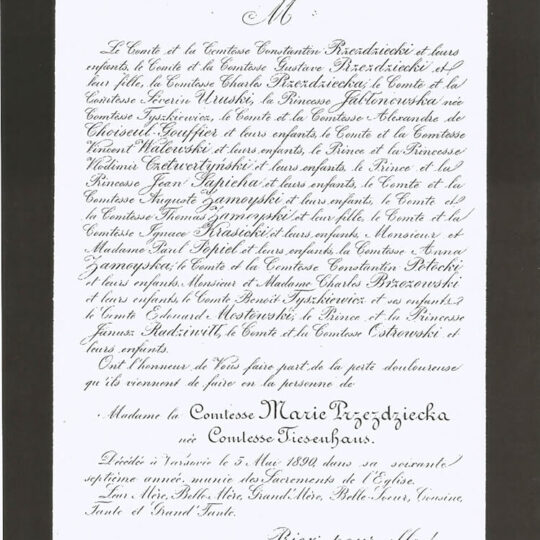 M
Le Comte et la Comtesse Constantin Przezdziecki et leurs
enfants, le Comte et la Comtesse Gustave Przezdziecki et
leur fille, la Comtesse Charles Przezdziecka; le Comte et la
Comtesse Séverin Uruski, la Princesse Jabłonowska née
Comtesse Tyszkiewicz, le Comte et la Comtesse Alexandre de
Choiseul-Gouffier et leurs enfants, le Comte et la Comtesse
Vincent Walewski et leurs enfants, le Prince et la Princesse
Vlodimir Czetwertyński et leurs enfants, le Prince et la
Princesse Jean Sapieha et leurs enfants, le Comte et la
Comtesse Auguste Zamoyski et leurs enfants, le Comte et
la Comtesse Thomas Zamoyski et leur fille, le Comte et la
Comtesse Ignace Krasicki et leurs enfants, Monsieur et
Madame Paul Popiel et leurs enfants, la Comtesse Anna
Zamoyska; le Comte et la Comtesse Constantin Potocki
et leurs enfants, Monsieur et Madame Charles Brzozowski
et leurs enfants, le Comte Benoit Tyszkiewicz et ses enfants,
le Comte Edouard Mostowski; le Prince et la Princesse
Janusz Radziwiłł, le Comte et la Comtesse Ostrowski et
leurs enfants.
Ont l'honneur de Vous faire part de la perte douloureuse
qu'ils viennent de faire en la personne de
Madame la Comtesse Marie Przezdziecka
née Comtesse Tiesenhaus.
Décédée à Varsovie le 5 Mai 1890, dans sa soixante
septième année, munie des Sacrements de l'Eglise.
Leur Mère, Belle-Mère, Grand'Mère, Belle-Soeur, Cousine,
Tante et Grand'Tante.